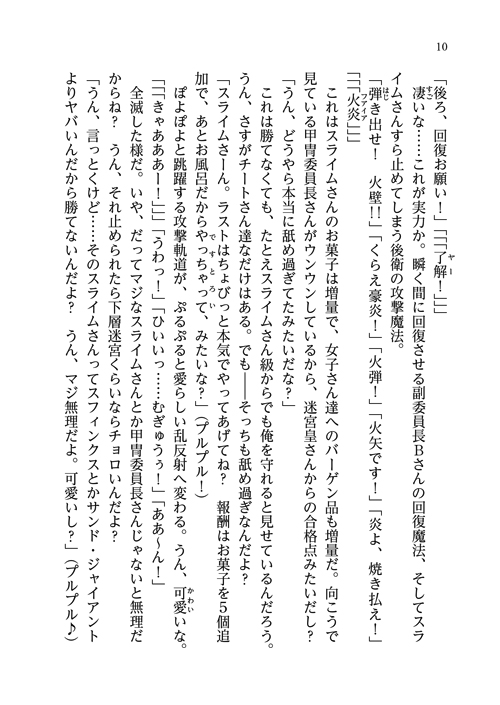 10
「後ろ、回復お願い！」「「「了解！」」」
　凄いな……これが実力か。瞬く間に回復させる副委員長Ｂさんの回復魔法、そしてスラ
イムさんすら止めてしまう後衛の攻撃魔法。
「弾き出せ！　火壁!!」「くらえ豪炎！」「火弾！」「火矢です！」「炎よ、焼き払え！」
「「「火炎」」」
　これはスライムさんのお菓子は増量で、女子さん達へのバーゲン品も増量だ。向こうで
見ている甲冑委員長さんがウンウンしているから、迷宮皇さんからの合格点みたいだし？
「うん、どうやら本当に舐め過ぎてたみたいだな？」
　これは勝てなくても、たとえスライムさん級からでも俺を守れると見せているんだろう。
うん、さすがチートさん達なだけはある。でも――そっちも舐め過ぎなんだよ？
「スライムさーん。ラストはちょびっと本気でやってあげてね？　報酬はお菓子を５個追
加で、あとお風呂だからやっちゃって、みたいな？」（プルプル！）
　ぽよぽよと跳躍する攻撃軌道が、ぷるぷると愛らしい乱反射へ変わる。うん、可愛いな。
「「「きゃあああー！」」」「うわっ！」「ひいいっ……むぎゅうぅ！」「ああ～ん！」
　全滅した様だ。いや、だってマジなスライムさんとか甲冑委員長さんじゃないと無理だ
からね？　うん、それ止められたら下層迷宮くらいならチョロいんだよ？
「うん、言っとくけど……そのスライムさんってスフィンクスとかサンド・ジャイアント
よりヤバいんだから勝てないんだよ？　うん、マジ無理だよ。可愛いし？」（プルプル♪）